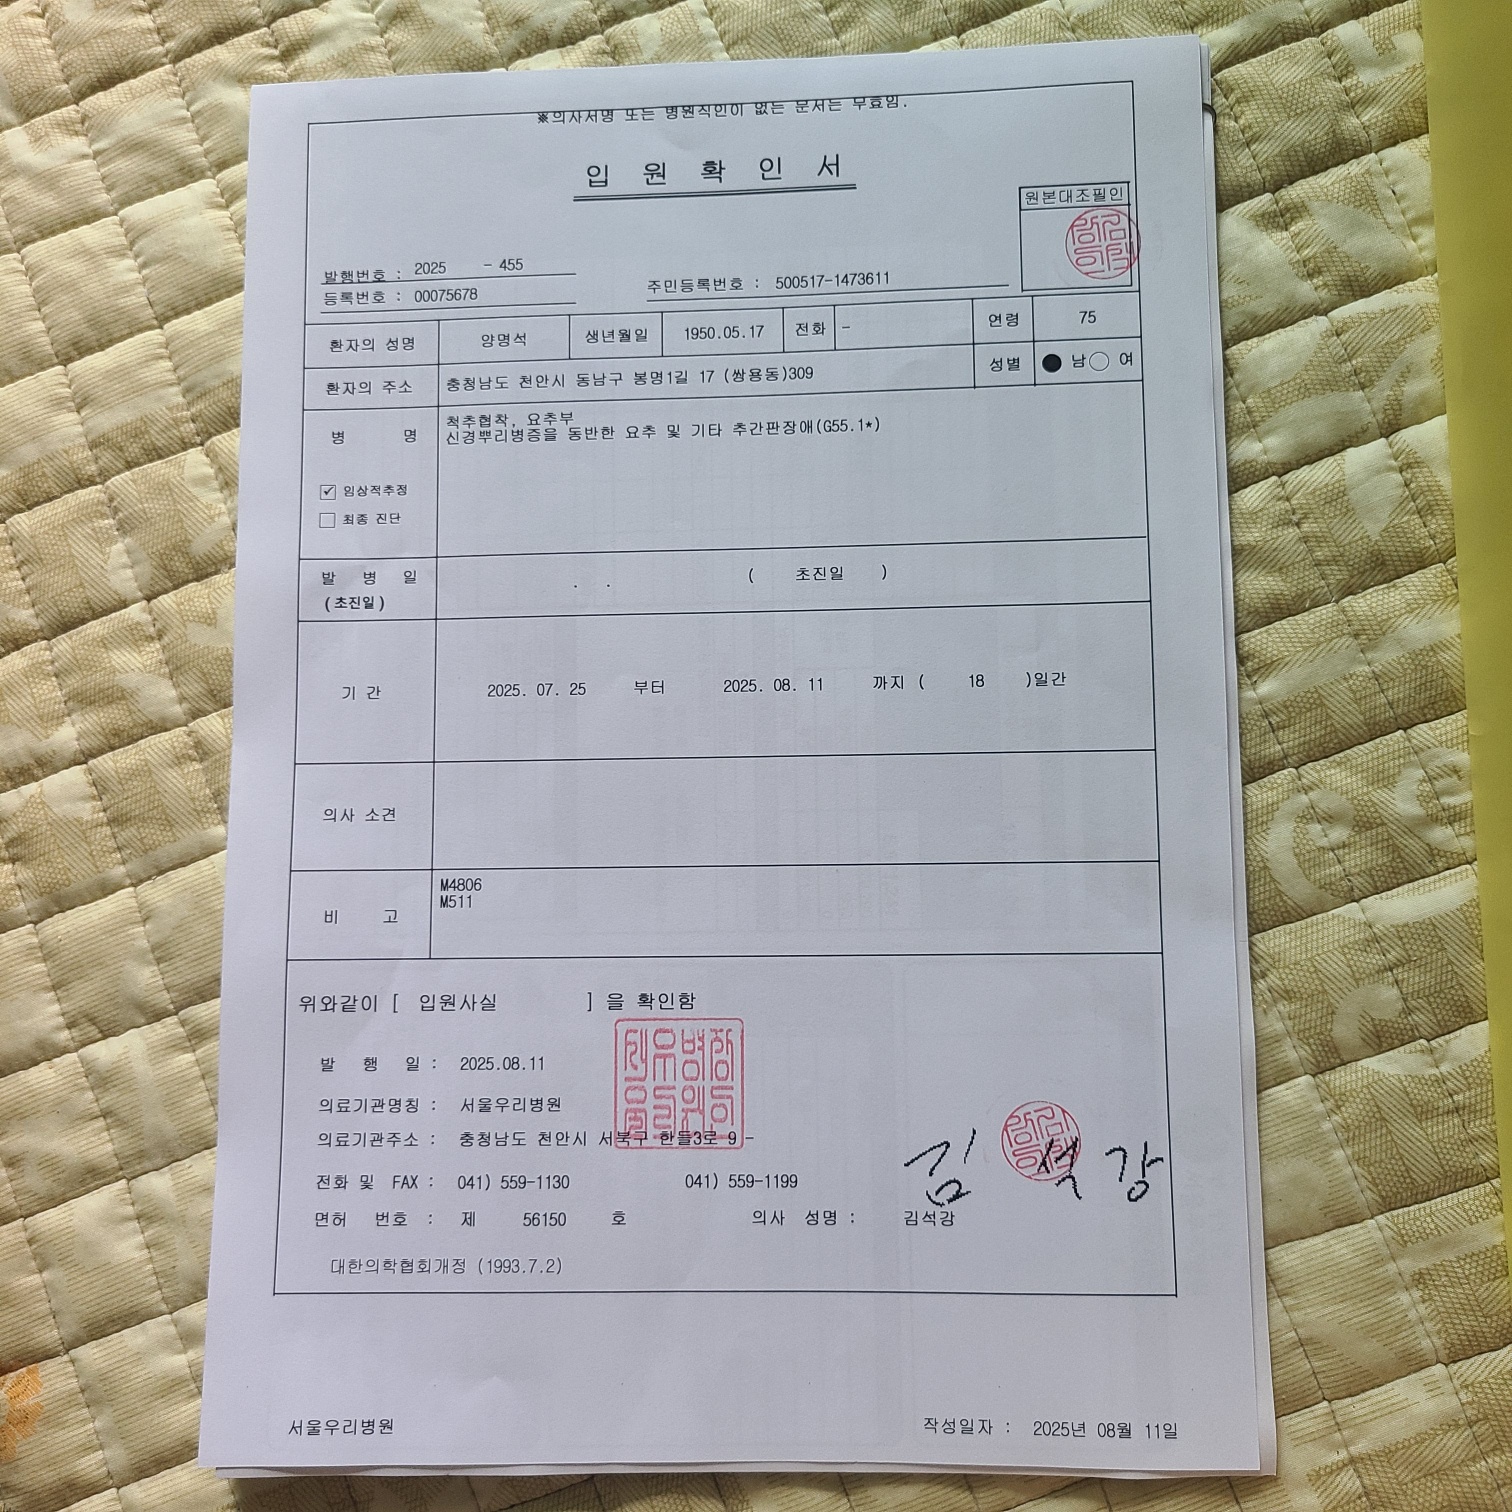 ※의사서명 또는 병원직인이 없는 문서는 무효임.
입 원 확 인 서
원본대조필인
발행번호 : 2025 - 455
등록번호 : 00075678 주민등록번호 : 500517-1473611
환자의 성명 양명석 생년월일 1950.05.17 전화 - 연령 75
환자의 주소 충청남도 천안시 동남구 봉명1길 17 (쌍용동)309 성별 ● 남 ○ 여
병 명 척추협착, 요추부
신경뿌리병증을 동반한 요추 및 기타 추간판장애(G55.1*)
☑ 임상적추정
☐ 최종 진단
발 병 일 . . ( 초진일 )
(초진일)
기 간 2025. 07. 25 부터 2025. 08. 11 까지 ( 18 )일간
의사 소견
비 고 M4806
M511
위와같이 [ 입원사실 ] 을 확인함
발 행 일 : 2025.08.11
의료기관명칭 : 서울우리병원
의료기관주소 : 충청남도 천안시 서북구 한들3로 9 -
김석강
전화 및 FAX : 041) 559-1130 041) 559-1199
면허 번호 : 제 56150 호 의사 성명 : 김석강
대한의학협회개정 (1993.7.2)
서울우리병원 작성일자 : 2025년 08월 11일